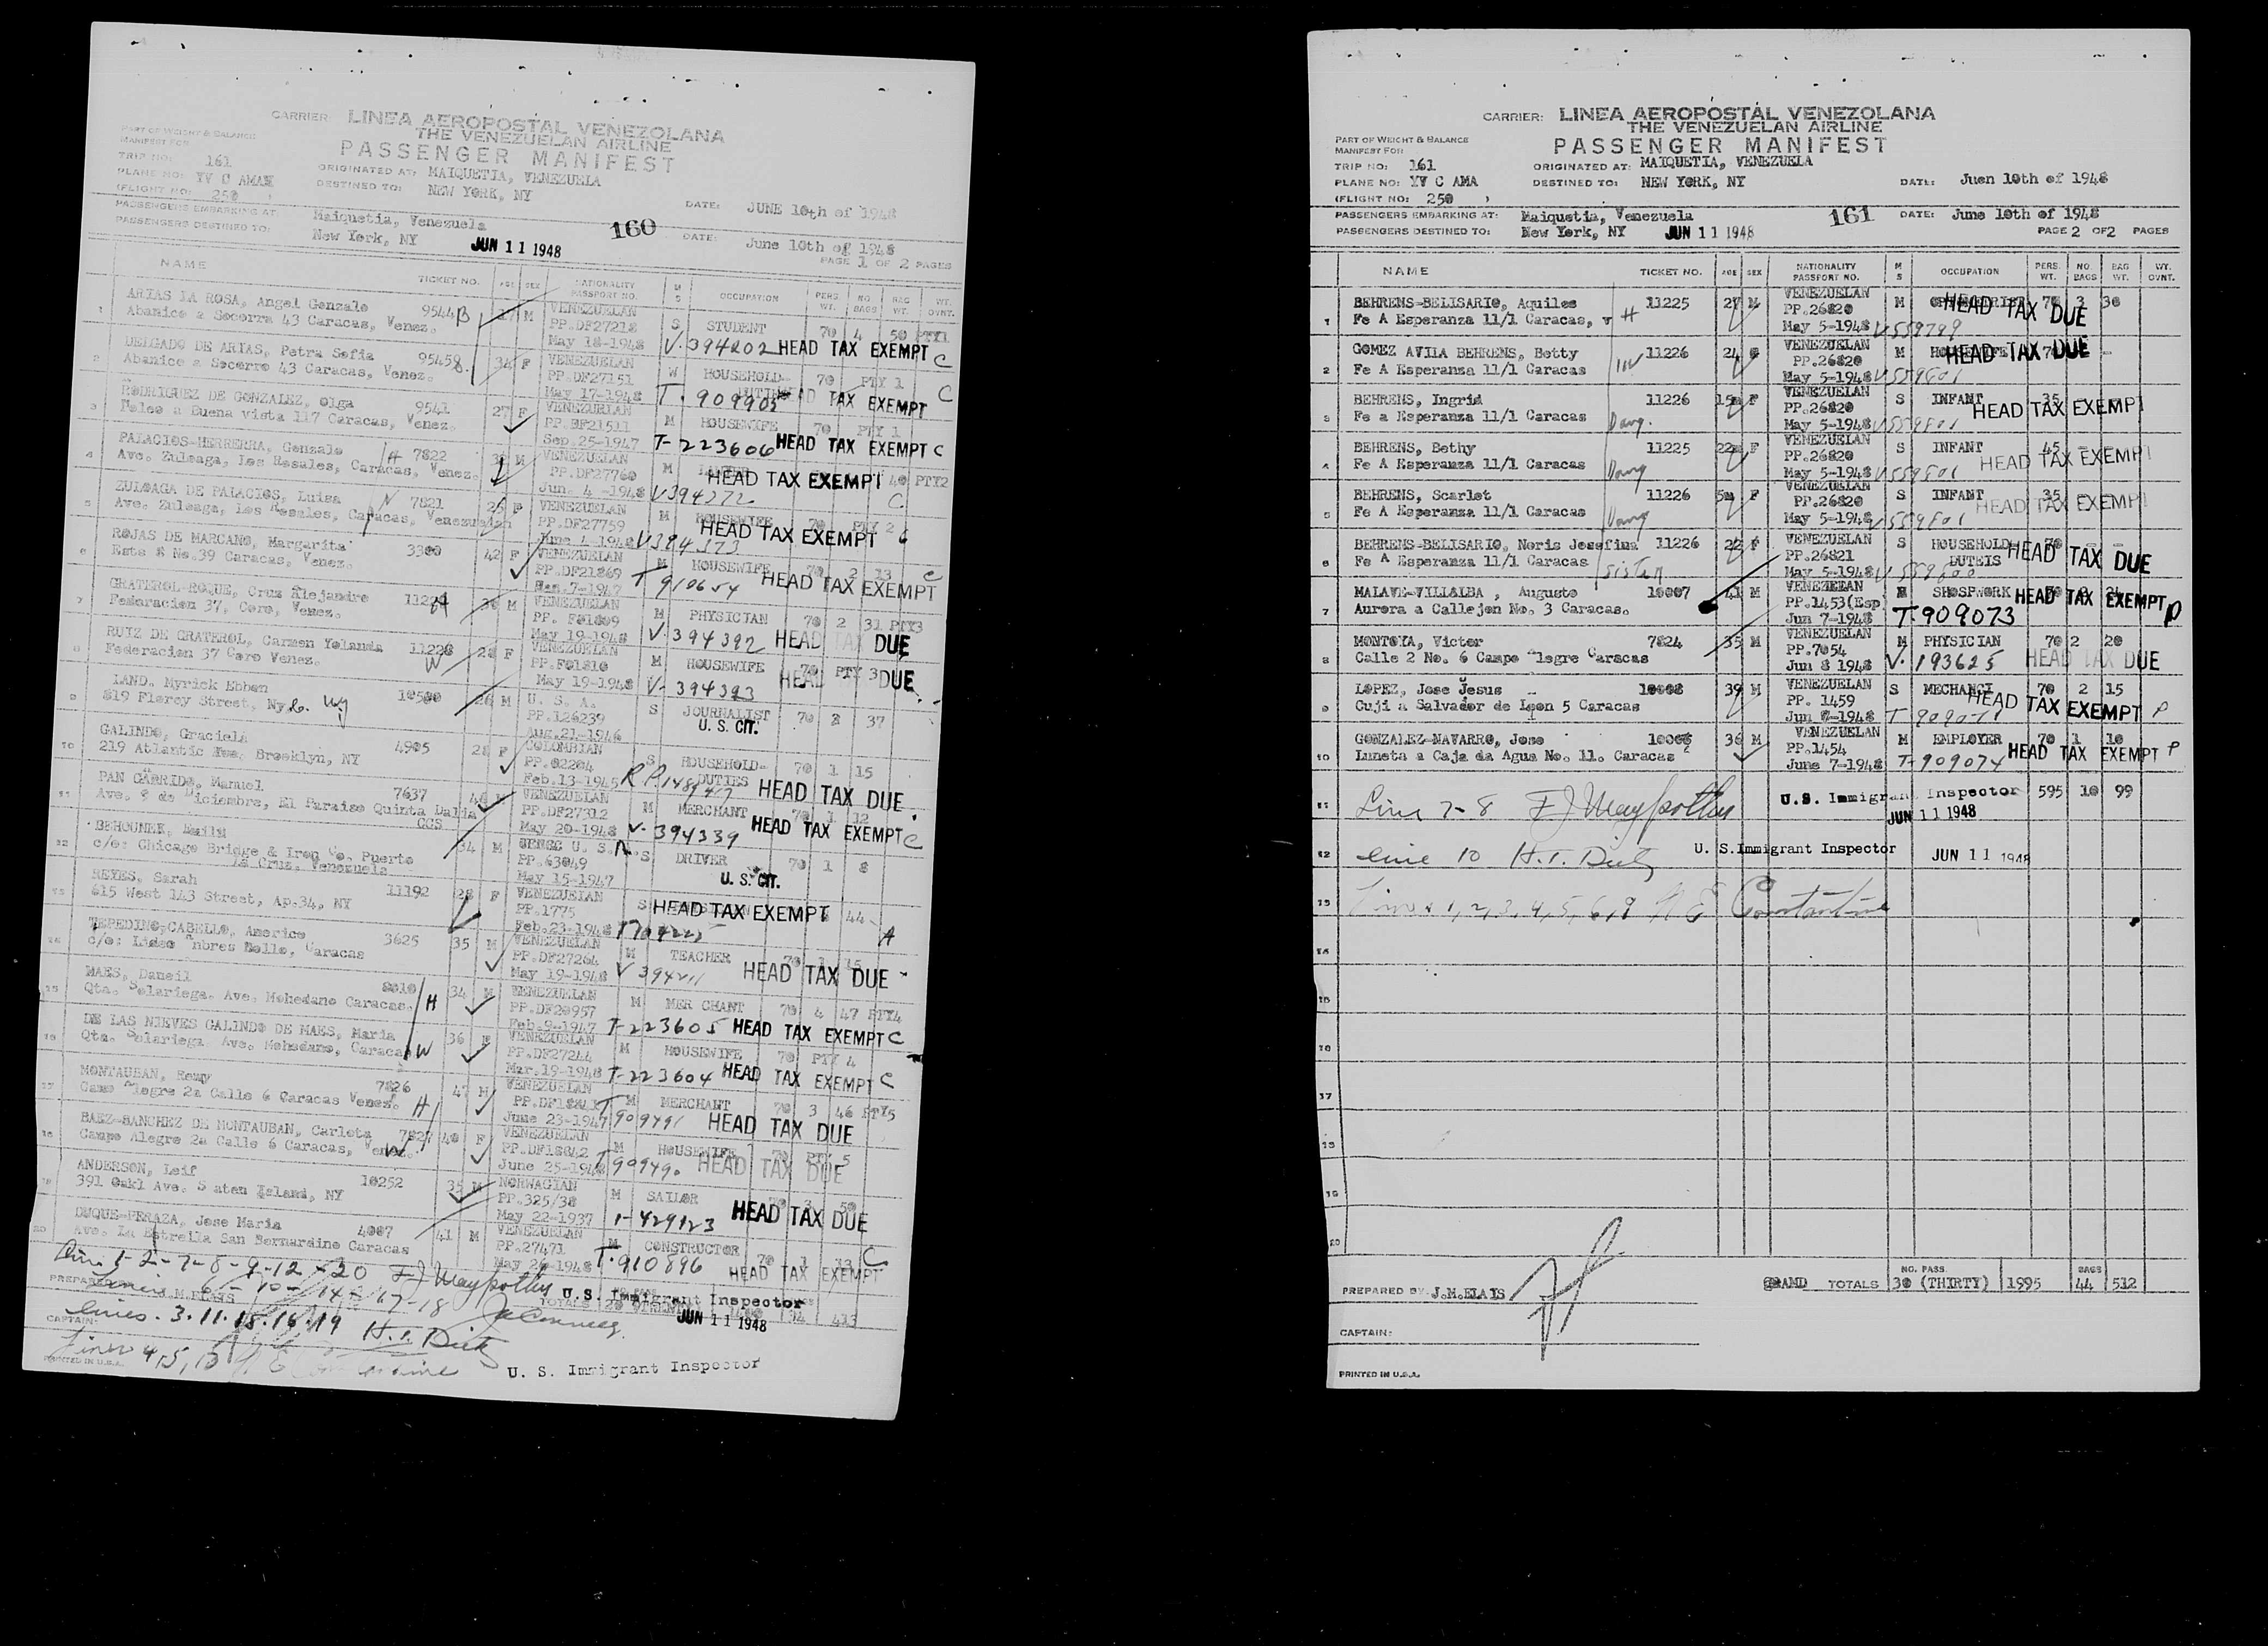 CARRIER: LINEA AEROPOSTAL VENEZOLANA
THE VENEZUELAN AIRLINE
PART OF WEIGHT & BALANCE
MANIFEST FOR
PASSENGER MANIFEST
TRIP NO: 161
ORIGINATED AT: MAIQUETIA, VENEZUELA
PLANE NO: YV C AMA
DESTINED TO: NEW YORK, NY
(FLIGHT NO: 250 )
DATE: JUNE 10th of 1948
PASSENGERS EMBARKING AT: Maiquetia, Venezuela
160
PASSENGERS DESTINED TO: New York, NY
JUN 11 1948
DATE: June 10th of 1948
PAGE 1 OF 2 PAGES
NAME TICKET NO. AGE SEX NATIONALITY PASSPORT NO. M S OCCUPATION PERS. WT. NO BAGS BAG WT. WT. OVNT.
1 ARIAS LA ROSA, Angel Gonzalo 9544B 17 M VENEZUELAN S STUDENT 70 4 50 PTY1
Abanico a Socorro 43 Caracas, Venez. PP.DF27218
May 18-1948 V-394202 HEAD TAX EXEMPT C
2 DELGADO DE ARIAS, Petra Sofia 9545B 34 F VENEZUELAN W HOUSEHOLD- 70 PTY 1
Abanico a Socorro 43 Caracas, Venez. PP.DF27151
May 17-1948 T-909905 HEAD TAX EXEMPT C
3 RODRIGUEZ DE GONZALEZ, Olga 9541 27 F VENEZUELAN M HOUSEWIFE 70 PTY 1
Poleo a Buena vista 117 Caracas, Venez. PP.DF21511
Sep.25-1947 T-223606 HEAD TAX EXEMPT C
4 PALACIOS-HERRERRA, Gonzalo H 7822 M VENEZUELAN M 40 PTY2
Ave. Zuloaga, Los Rosales, Caracas, Venez. PP.DF27760
Jun. 4 -1948 V394272 HEAD TAX EXEMPT C
5 ZULOAGA DE PALACIOS, Luisa 7821 25 F VENEZUELAN M HOUSEWIFE 70 PTY 2
Ave. Zuloaga, Los Rosales, Caracas, Venezuelan PP.DF27759
June 4-1948 V394273 HEAD TAX EXEMPT C
6 ROJAS DE MARCANO, Margarita 3300 42 F VENEZUELAN M HOUSEWIFE 70 2 13
Este 8 No.39 Caracas, Venez. PP.DF21869
T 910654 HEAD TAX EXEMPT C
7 GRATEROL-ROQUE, Cruz Alejandro 30 M VENEZUELAN M PHYSICIAN 70 2 31 PTY3
Federacion 37, Coro, Venez. PP. F01809
May 19-1948 V-394392 HEAD TAX DUE
8 RUIZ DE GRATEROL, Carmen Yolanda 11228 W 28 F VENEZUELAN M HOUSEWIFE 70 PTY 3
Federacion 37 Coro Venez. PP.F01810
May 19-1948 V-394393 HEAD TAX DUE
9 LAND. Myrick Ebben 10500 26 M U. S. A. S JOURNALIST 70 2 37
819 Florcy Street, PP.126239
Aug.21-1946 U.S. CIT.
10 GALINDO, Graciela 4905 28 F COLOMBIAN S HOUSEHOLD- 70 1 15
219 Atlantic Ave. Brooklyn, NY PP.02204 DUTIES
Feb.13-1945 HEAD TAX DUE
11 PAN GARRIDO, Manuel 7637 48 M VENEZUELAN M MERCHANT 70 1 12
Ave. 9 de Diciembre, El Paraiso Quinta Dalia CCS PP.DF27312
May 20-1948 V-394339 HEAD TAX EXEMPT C
12 BEHOUNEK, Emil 34 M U. S. A. S DRIVER 70 1 8
c/o: Chicago Bridge & Iron Co. Puerto PP.63049
La Cruz, Venezuela May 15-1947 U.S. CIT.
13 REYES, Sarah 11192 28 F VENEZUELAN S 44
615 West 143 Street, Ap.34, NY PP.1775
Feb.23-1948 HEAD TAX EXEMPT A
14 TEPEDINO-CABELLO, Americo 3625 35 M VENEZUELAN M TEACHER 70 1 15
Caracas PP.DF27264
May 19-1948 V 394211 HEAD TAX DUE
15 MAES, Daneil 34 M VENEZUELAN M MER CHANT 70 4 47 PTY4
Qta. Solariega. Ave. Mohedano Caracas. H PP.DF20957
Feb.9-1947 T-223605 HEAD TAX EXEMPT C
16 DE LAS NIEVES GALINDO DE MAES, Maria 36 F VENEZUELAN M HOUSEWIFE 70 PTY 4
Qta. Solariega Ave. Mohedano, Caracas W PP.DF27244
Mar.19-1948 T-223604 HEAD TAX EXEMPT C
17 MONTAUBAN, Remy 7826 47 M VENEZUELAN M MERCHANT 70 3 46 PTY5
Camp Alegre 2a Calle 6 Caracas Venez. H
June 23-1947 T909491 HEAD TAX DUE
18 BAEZ-SANCHEZ DE MONTAUBAN, Carlota 7827 40 F VENEZUELAN M HOUSEWIFE 70 PTY 5
Campo Alegre 2a Calle 6 Caracas, Venez. W PP.DF18842
June 25-1948 T909490 HEAD TAX DUE
19 ANDERSON, Leif 10252 35 M NORWAGIAN M SAILOR 70 2 50
391 Oakl Ave. S aten Island, NY PP.325/38
May 22-1937 1-429123 HEAD TAX DUE
20 DUQUE-PERAZA, Jose Maria 4007 41 M VENEZUELAN M CONSTRUCTOR 70 1 13
Ave. La Estrella San Bernardino Caracas PP.27471
May 26-1948 T-910896 HEAD TAX EXEMPT C
Line 1-2-7-8-9-12-20
U.S. Immigrant Inspector
PREPARED BY J.M.ELAIS
TOTALS 194 413
JUN 11 1948
Lines. 3.11.15.16.19 H.T. Dietz
CAPTAIN:
Lines 4,5,13
PRINTED IN U.S.A.
U. S. Immigrant Inspector
CARRIER: LINEA AEROPOSTAL VENEZOLANA
THE VENEZUELAN AIRLINE
PART OF WEIGHT & BALANCE
MANIFEST FOR:
PASSENGER MANIFEST
TRIP NO: 161
ORIGINATED AT: MAIQUETIA, VENEZUELA
PLANE NO: YV C AMA
DESTINED TO: NEW YORK, NY
DATE: Juen 10th of 1948
(FLIGHT NO: 250 )
PASSENGERS EMBARKING AT: Maiquetia, Venezuela
161
DATE: June 10th of 1948
PASSENGERS DESTINED TO: New York, NY
JUN 11 1948
PAGE 2 OF2 PAGES
NAME TICKET NO. AGE SEX NATIONALITY PASSPORT NO. M S OCCUPATION PERS. WT. NO. BAGS BAG WT. WT. OVNT.
1 BEHRENS-BELISARIO, Aquiles 11225 27 M VENEZUELAN M 70 3 30
Fe A Esperanza 11/1 Caracas, v H PP.26820 HEAD TAX DUE
May 5-1948 V559799
2 GOMEZ AVILA BEHRENS, Betty 11226 24 VENEZUELAN M HOUSEWIFE 70 -
Fe A Esperanza 11/1 Caracas W PP.26820 HEAD TAX DUE
May 5-1948 V559801
3 BEHRENS, Ingrid 11226 15m F VENEZUELAN S INFANT 35
Fe a Esperanza 11/1 Caracas Daug. PP.26820 HEAD TAX EXEMPT
May 5-1948 V559801
4 BEHRENS, Bethy 11225 22m F VENEZUELAN S INFANT 45
Fe A Esperanza 11/1 Caracas Daug PP.26820 HEAD TAX EXEMPT
May 5-1948 V559801
5 BEHRENS, Scarlet 11226 5m F VENEZUELAN S INFANT 35
Fe A Esperanza 11/1 Caracas Daug PP.26820 HEAD TAX EXEMPT
May 5-1948 V559801
6 BEHRENS-BELISARIO, Noris Josefina 11226 22 F VENEZUELAN S HOUSEHOLD- 70
Fe A Esperanza 11/1 Caracas Sister PP.26821 DUTEIS HEAD TAX DUE
May 5-1948 V559800
7 MALAVE-VILLALBA , Augusto 10007 41 M VENEZUELAN M SHOSPWORK
Aurora a Callejon No. 3 Caracas. PP.1453(Esp) HEAD TAX EXEMPT P
Jun 7-1948 T-909073
8 MONTOYA, Victor 7824 35 M VENEZUELAN M PHYSICIAN 70 2 20
Calle 2 No. 6 Campo Alegre Caracas PP.7054
Jun 8 1948 V-193625 HEAD TAX DUE
9 LOPEZ, Jose Jesus 10008 39 M VENEZUELAN S MECHANCI 70 2 15
Cuji a Salvador de Leon 5 Caracas PP. 1459 HEAD TAX EXEMPT P
Jun 8-1948 T 909071
10 GONZALEZ-NAVARRO, Jose 36 M VENEZUELAN M EMPLOYER 70 1 10
Luneta a Caja da Agua No. 11. Caracas PP.1454 HEAD TAX EXEMPT P
June 7-1948 T-909074
11 Line 7-8 U.S. Immigrant Inspector 595 10 99
JUN 11 1948
12 Line 10 H.T. Dietz U. S.Immigrant Inspector JUN 11 1948
13 Lines 1,2,3,4,5,6,9 Constantine
14
15
16
17
18
19
20
PREPARED BY J.M.ELAIS
GRAND TOTALS NO. PASS. 30 (THIRTY) 1995 BAGS 44 512
CAPTAIN:
PRINTED IN U.S.A.